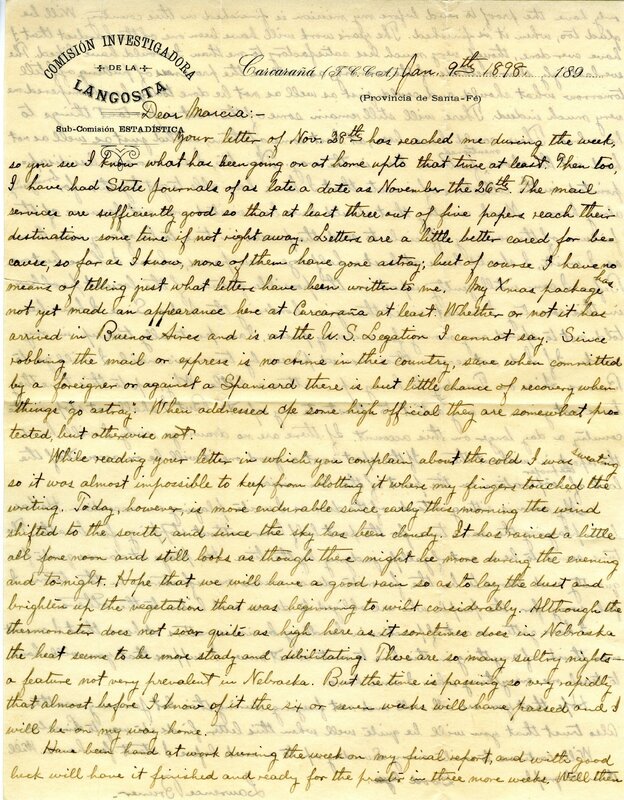 COMISIÓN INVESTIGADORA
DE LA
LANGOSTA
Sub-Comisión ESTADÍSTICA
Carcarañá (F.C.C.A.) Jan. 9th 1898. 189
(Provincia de Santa-Fé)
Dear Marcia:-
Your letter of Nov. 28th has reached me during the week,
so you see I know what has been going on at home up to that time at least. Then too,
I have had State Journals of as late a date as November the 26th. The mail
services are sufficiently good so that at least three out of five papers reach their
destination some time if not right away. Letters are a little better cared for be-
cause, so far as I know, none of them have gone astray; but of course I have no
means of telling just what letters have been written to me. My Xmas package has
not yet made an appearance here at Carcaraña at least. Whether or not it has
arrived in Buenos Aires and is at the U.S. Legation I cannot say. Since
robbing the mail or express is no crime in this country, save when committed
by a foreigner or against a Spaniard there is but little chance of recovery when
things "go astray." When addressed c/o some high official they are somewhat pro-
tected, but otherwise not.
While reading your letter in which you complain about the cold I was sweating
so it was almost impossible to keep from blotting it where my fingers touched the
writing. Today, however, is more endurable since early this morning the wind
shifted to the south, and since the sky has been cloudy. It has rained a little
all fore noon and still looks as though there might be more during the evening
and to-night. Hope that we will have a good rain so as to lay the dust and
brighten up the vegetation that was beginning to wilt considerably. Although the
thermometer does not soar quite as high here as it sometimes does in Nebraska
the heat seems to be more stady and debilitating. There are so many sultry nights—
a feature not very prevalent in Nebraska. But the time is passing so very rapidly
that almost before I know of it the six or seven weeks will have passed and I
will be on my way home.
Have been hard at work during the week on my final report, and with good
luck will have it finished and ready for the printer in three more weeks. Well then